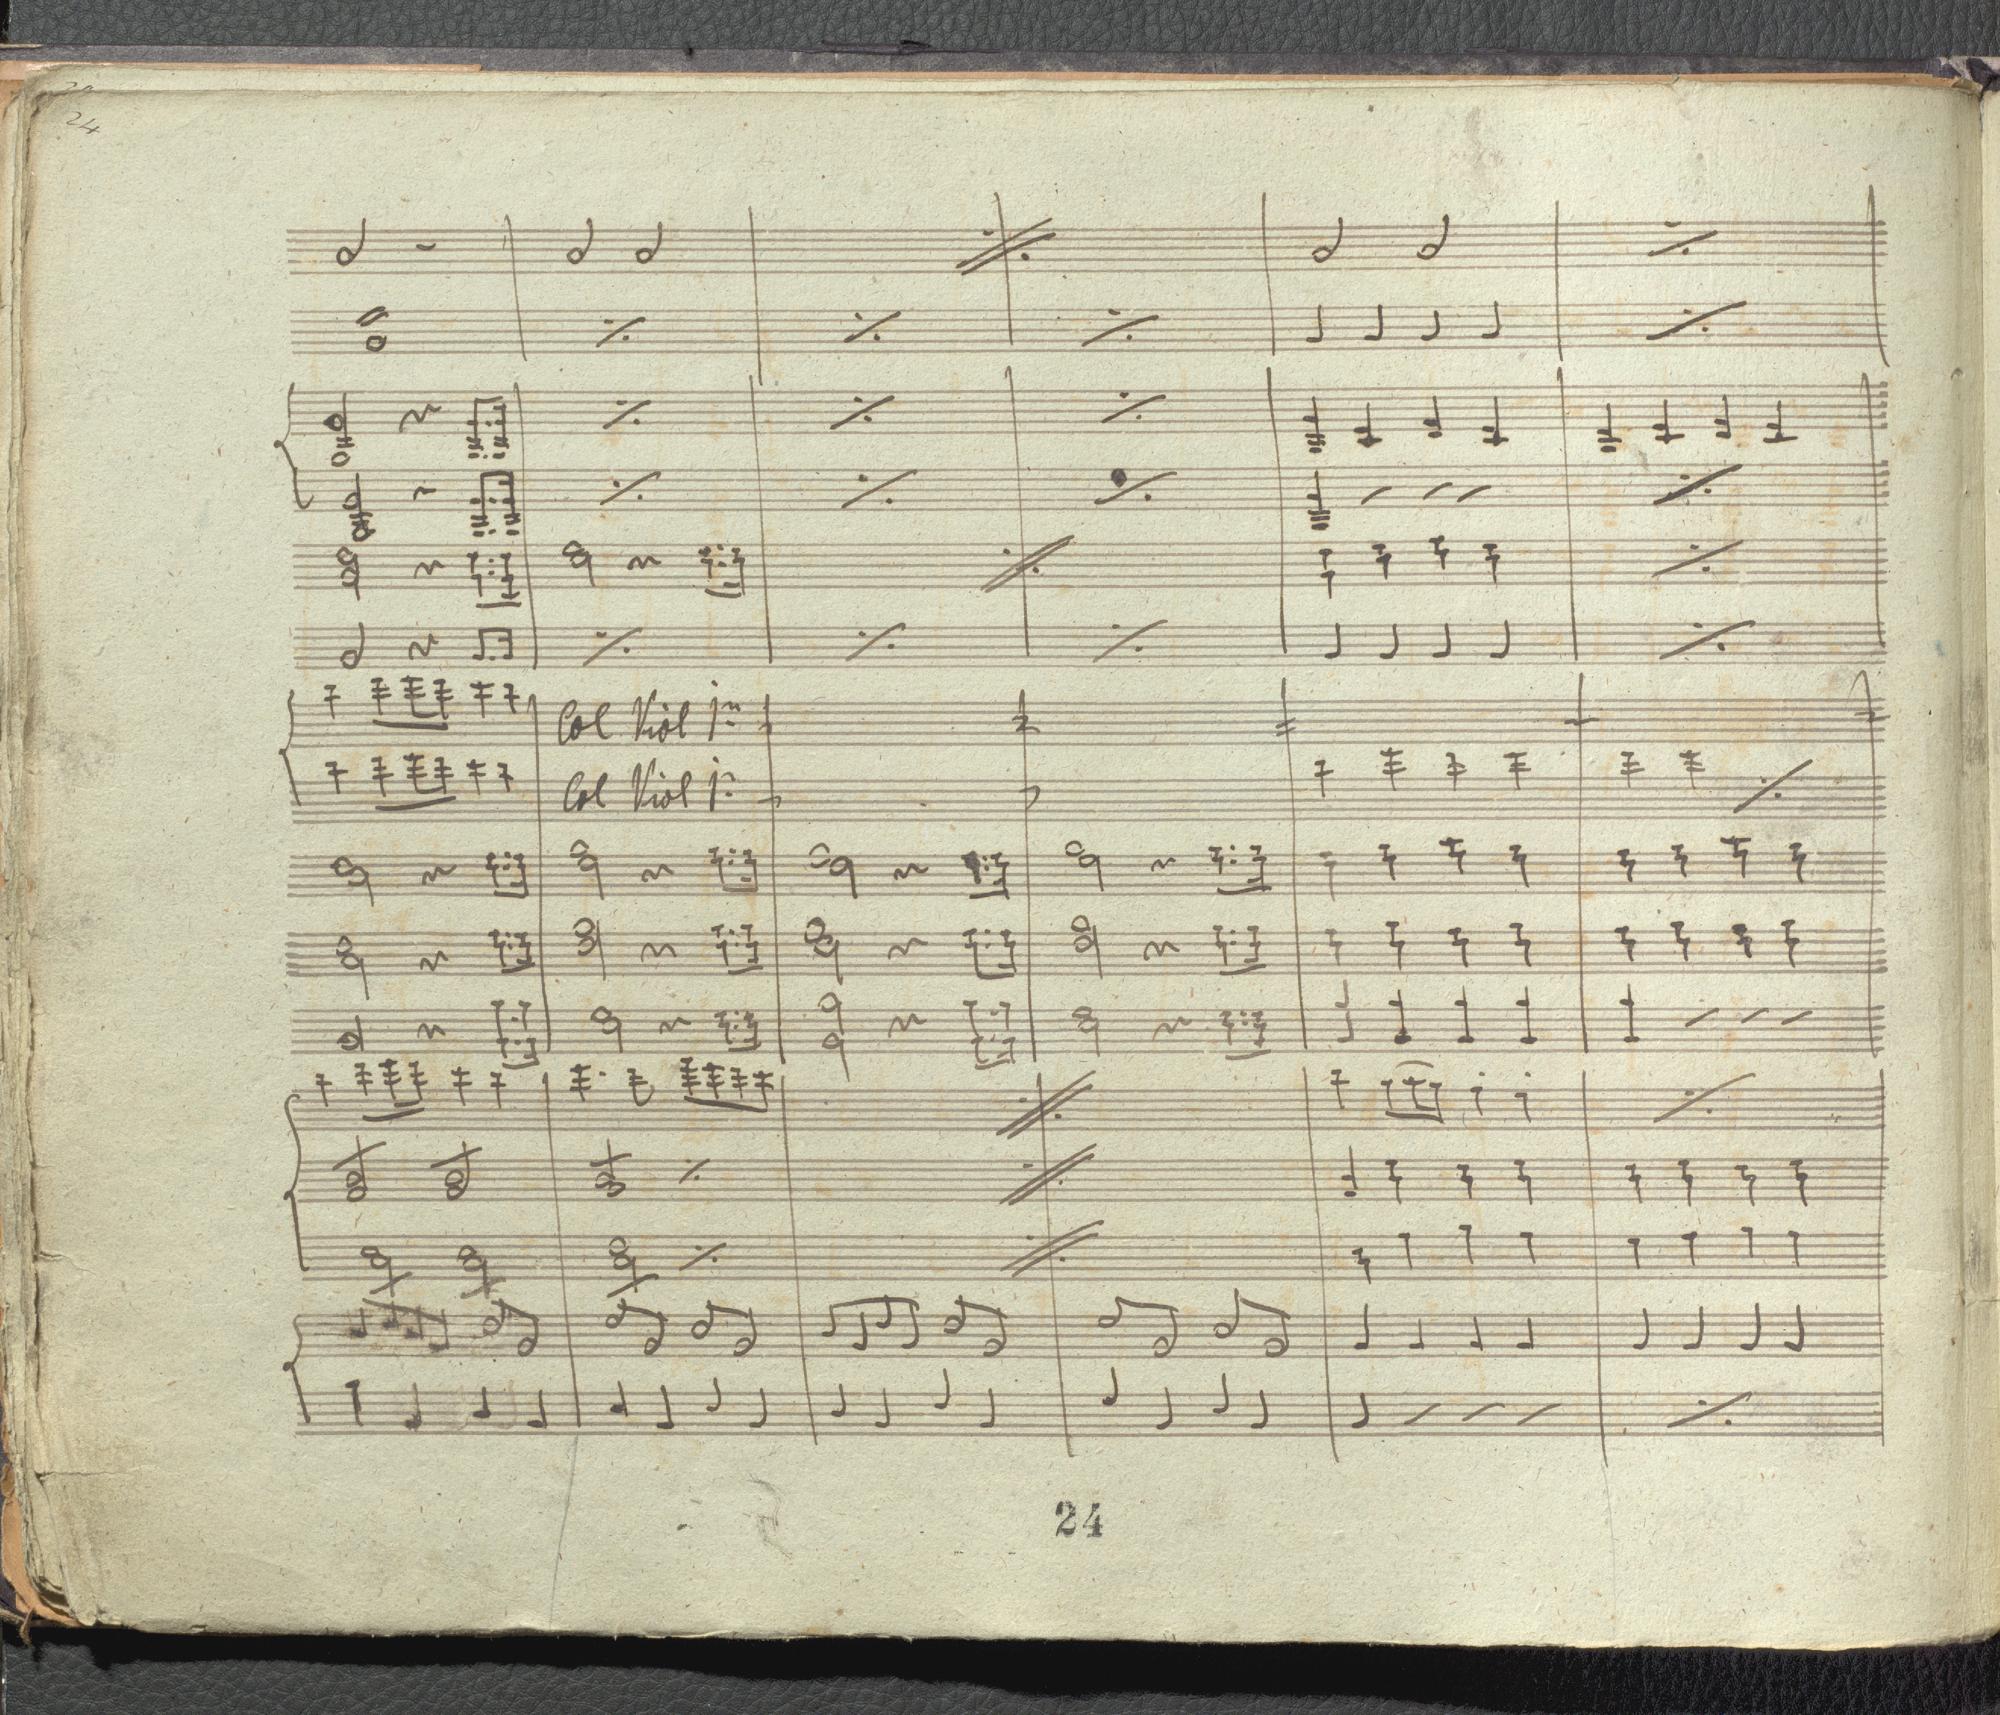 24
Col Viol 1mo
Col Viol 1mo
24